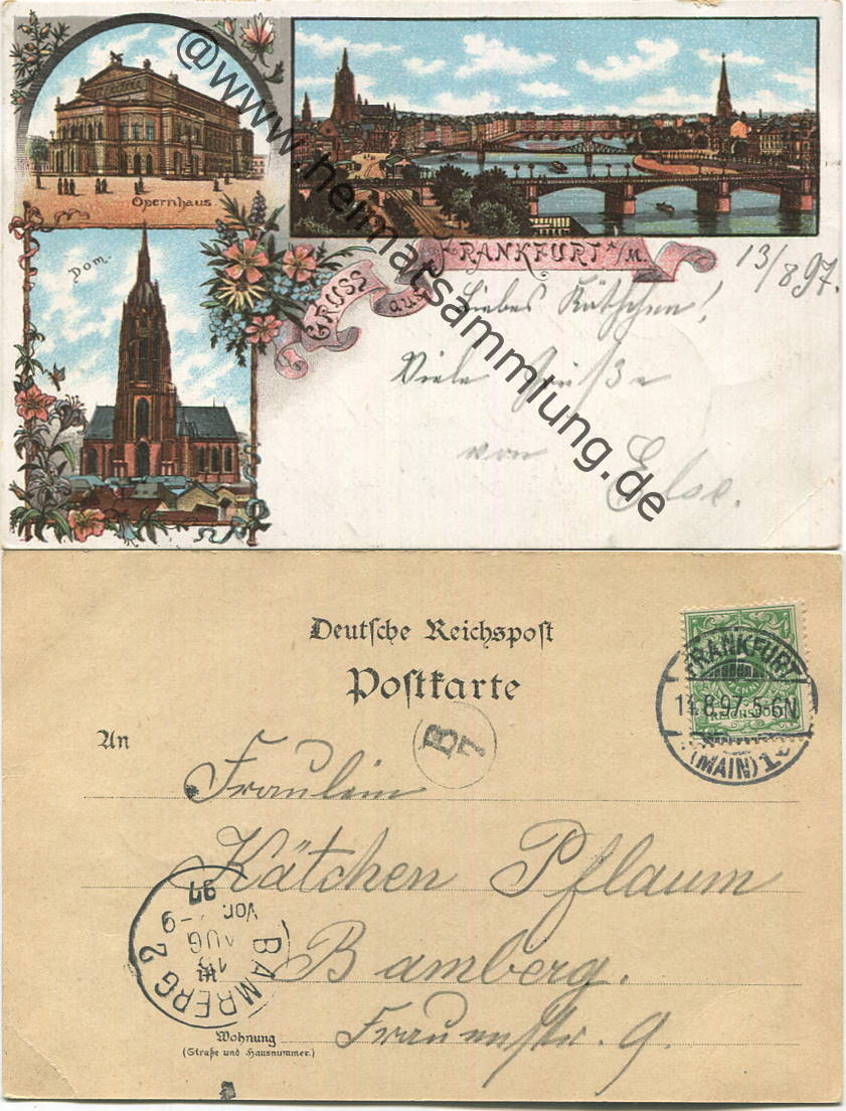 Opernhaus
Dom.
GRUSS aus FRANKFURT A/M.
13/8 97.
Liebes Kätchen!
Viele Grüße
von Else.
@www.heimatsammlung.de
Deutsche Reichspost
Postkarte
An
B
7
FRANKFURT
14.8.97.5-6N.
(MAIN) 1
REICHSPOST
Fräulein
Kätchen Pflaum
Bamberg.
Frauenstr. 9.
BAMBERG 2
AUG
Vor. -9
97
Wohnung
(Straße und Hausnummer.)